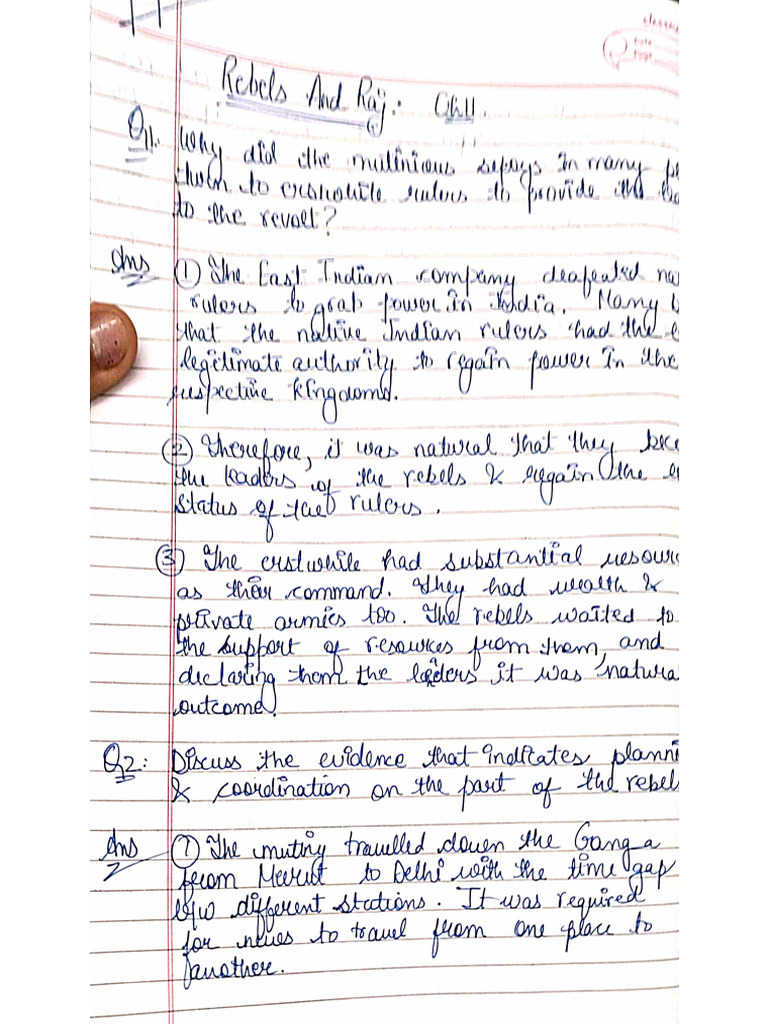 Rebels And Raj: Ch11.
Q1. Why did the mutinious sepoys in many
turn to erstwhile rulers to provide
to the revolt?
Ans ① The East Indian company deafeated
rulers to grab power in India. Many
that the native Indian rulers had the
legitimate authority to regain power in the
respective kingdoms.
② Therefore, it was natural that they
the leaders of the rebels & regain the
status of the rulers.
③ The erstwhile had substantial resour
as their command. They had wealth &
private armies too. The rebels waited to
the support of resources from them, and
declaring them the leaders it was natura
outcome.
Q2: Discuss the evidence that indicates planni
& coordination on the part of the rebel
Ans ① The mutiny travelled down the Ganga
from Meerut to Delhi with the time gap
b/w different stations. It was required
for news to travel from one place to
another.